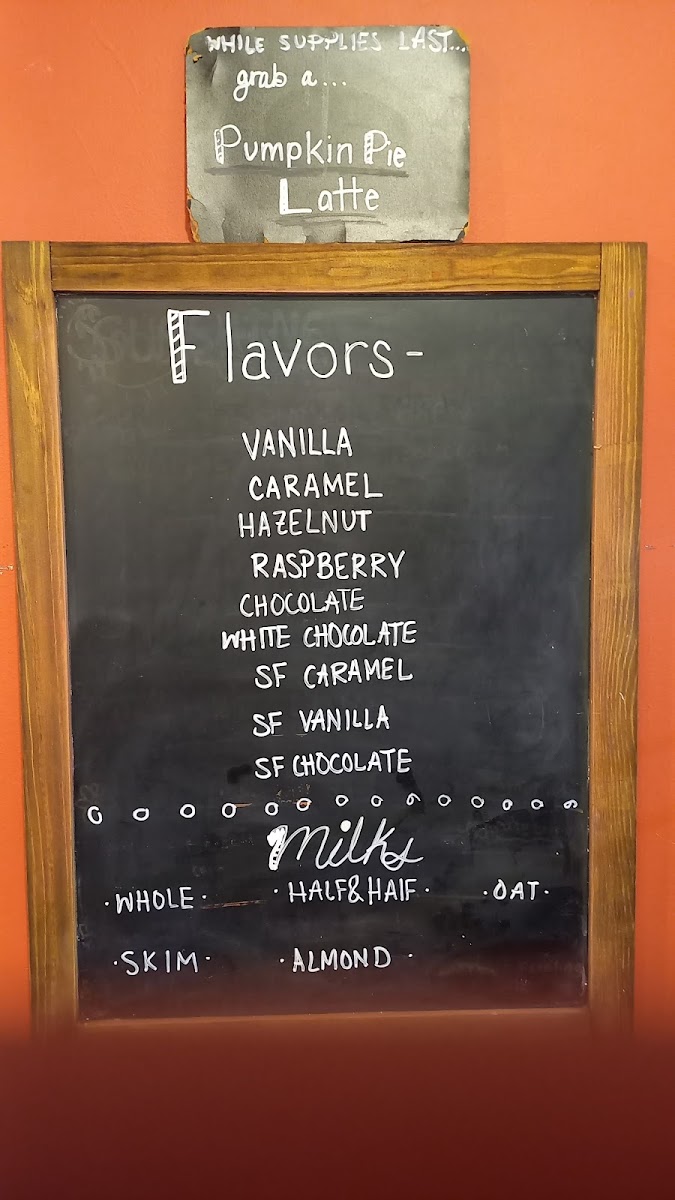 WHILE SUPPLIES LAST...
grab a...
Pumpkin Pie
Latte
Flavors-
VANILLA
CARAMEL
HAZELNUT
RASPBERRY
CHOCOLATE
WHITE CHOCOLATE
SF CARAMEL
SF VANILLA
SF CHOCOLATE
milks
·WHOLE· ·HALF&HALF· ·OAT·
·SKIM· ·ALMOND·